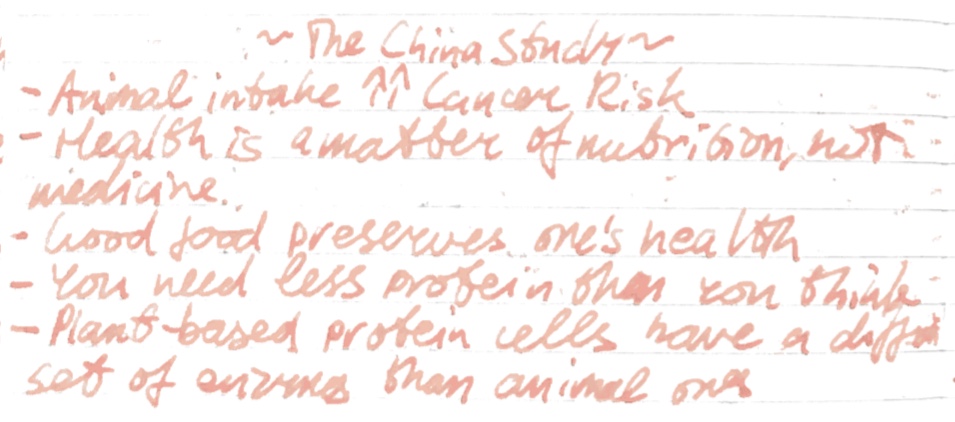 ~ The China Study ~
- Animal intake ↑↑ Cancer Risk
- Health is a matter of nutrition, not
medicine.
- Good food preserves one's health
- You need less protein than you think
- Plant-based protein cells have a
set of enzymes than animal ones